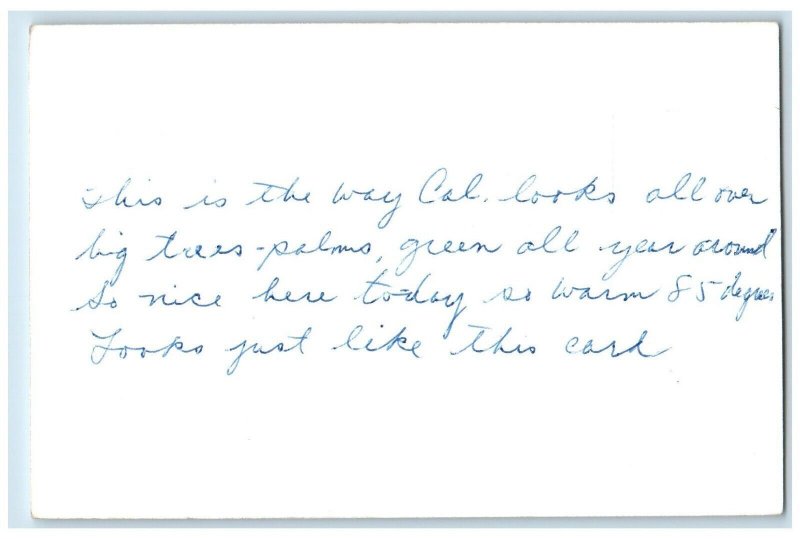 This is the way Cal. looks all over
big trees - palms, green all year around
So nice here to-day so warm 85 degrees
Looks just like this card